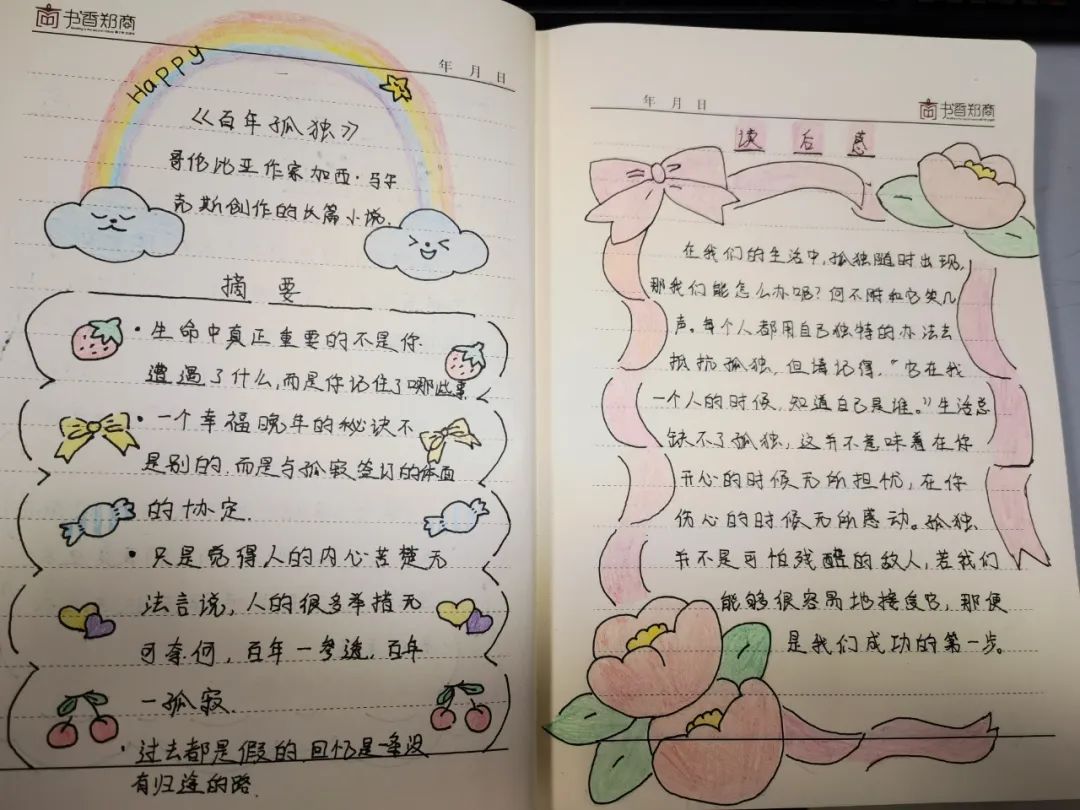 书香郑商
年 月 日
Happy
《百年孤独》
哥伦比亚作家加西·马尔
克斯创作的长篇小说.
摘 要
• 生命中真正重要的不是你
遭遇了什么,而是你记住了哪些事
• 一个幸福晚年的秘诀不
是别的,而是与孤寂签订的体面
的协定.
• 只是觉得人的内心苦楚无
法言说,人的很多举措无
可奈何,百年一参透,百年
一孤寂.
• 过去都是假的,回忆是一条没
有归途的路.
年 月 日
书香郑商
读 后 感
在我们的生活中,孤独随时出现,
那我们能怎么办呢?何不附和它笑几
声。每个人都用自己独特的办法去
抵抗孤独,但请记得,“它在我
一个人的时候,知道自己是谁。”生活总
缺不了孤独,这并不意味着在你
开心的时候无所担忧,在你
伤心的时候无所感动。孤独,
并不是可怕残酷的敌人,若我们
能够很容易地接受它,那便
是我们成功的第一步。